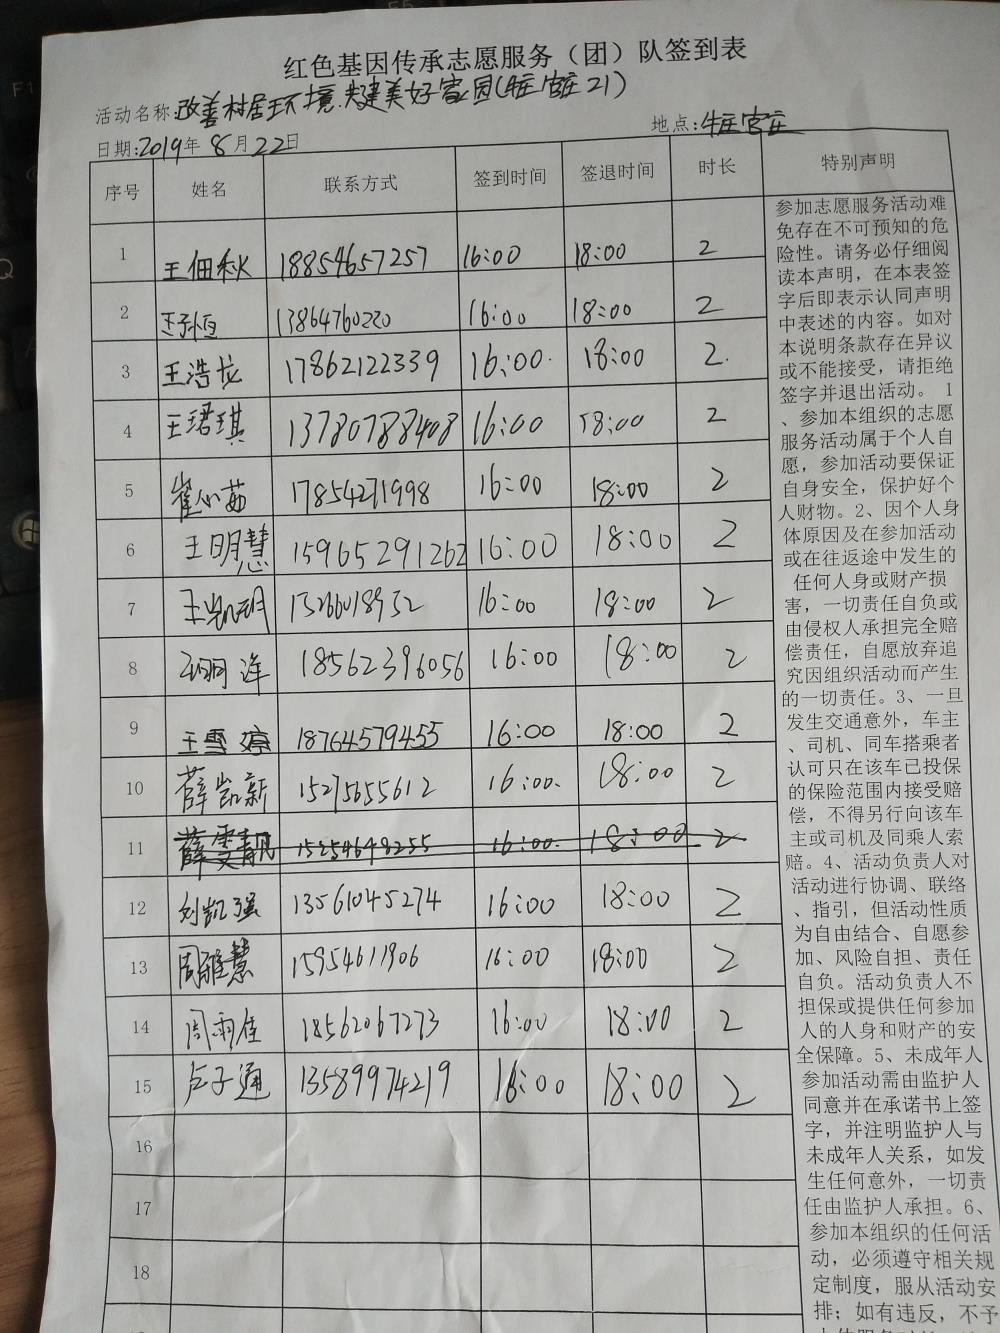 红色基因传承志愿服务（团）队签到表
活动名称:改善村居环境.共建美好家园(牛庄官庄21)
日期:2019年8月22日 地点:牛庄官庄
序号 姓名 联系方式 签到时间 签退时间 时长 特别声明
1 王佃秋 18854657257 16:00 18:00 2
2 王孙恒 13864760220 16:00 18:00 2
3 王浩龙 17862122339 16:00 18:00 2
4 王珺琪 13780788408 16:00 18:00 2
5 崔心茹 17854271998 16:00 18:00 2
6 王明慧 15965291262 16:00 18:00 2
7 王凯玥 15266018952 16:00 18:00 2
8 18562396056 16:00 18:00 2
9 王雪婷 18764579455 16:00 18:00 2
10 薛凯新 15275655612 16:00 18:00 2
11 薛雯靓 15254648255 16:00 18:00 2
12 刘凯强 13561045274 16:00 18:00 2
13 周雅慧 15954611906 16:00 18:00 2
14 周雨佳 18562067273 16:00 18:00 2
15 卢子通 13589974219 16:00 18:00 2
16
17
18
参加志愿服务活动难
免存在不可预知的危
险性。请务必仔细阅
读本声明，在本表签
字后即表示认同声明
中表述的内容。如对
本说明条款存在异议
或不能接受，请拒绝
签字并退出活动。 1
、参加本组织的志愿
服务活动属于个人自
愿，参加活动要保证
自身安全，保护好个
人财物。2、因个人身
体原因及在参加活动
或在往返途中发生的
任何人身或财产损
害，一切责任自负或
由侵权人承担完全赔
偿责任，自愿放弃追
究因组织活动而产生
的一切责任。3、一旦
发生交通意外，车主
、司机、同车搭乘者
认可只在该车已投保
的保险范围内接受赔
偿，不得另行向该车
主或司机及同乘人索
赔。4、活动负责人对
活动进行协调、联络
、指引，但活动性质
为自由结合、自愿参
加、风险自担、责任
自负。活动负责人不
担保或提供任何参加
人的人身和财产的安
全保障。5、未成年人
参加活动需由监护人
同意并在承诺书上签
字，并注明监护人与
未成年人关系，如发
生任何意外，一切责
任由监护人承担。6、
参加本组织的任何活
动，必须遵守相关规
定制度，服从活动安
排；如有违反，不予